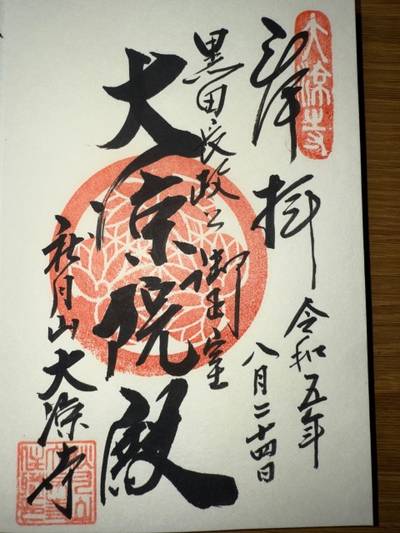 大涼寺
奉拝
令和五年
八月二十四日
黒田長政公御正室
大涼院殿
秋月山大涼寺